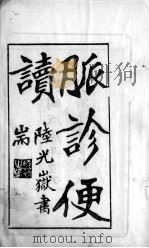 脈診便
讀
陸光嶽書
耑